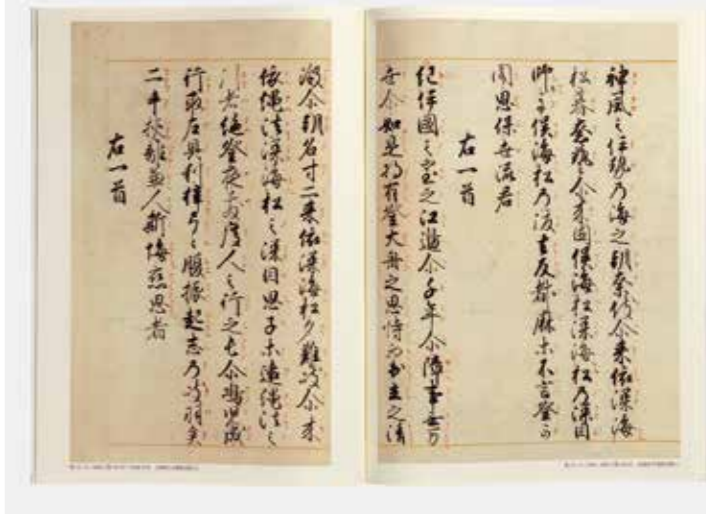 神風之伊勢乃海之朝奈伎尓来依深海
松暮奈藝尓来因俣海松深海松乃深目
師吾俣海松乃復去反都麻等不言登可
聞思保世流君
右一首
紀伊國之室之江邊尓千年尓障事無万
世尓如是将有登大舟之思恃而出立之清
瀲尓朝名寸二来依深海松夕難岐尓来
依縄法深海松之深目思子等遠縄法之
引者絶登夜散度人之行之屯尓鳴兒成
行取左具利梓弓々腹振起志乃岐羽矣
二手挾離兼人斯悔戀思者
右一首